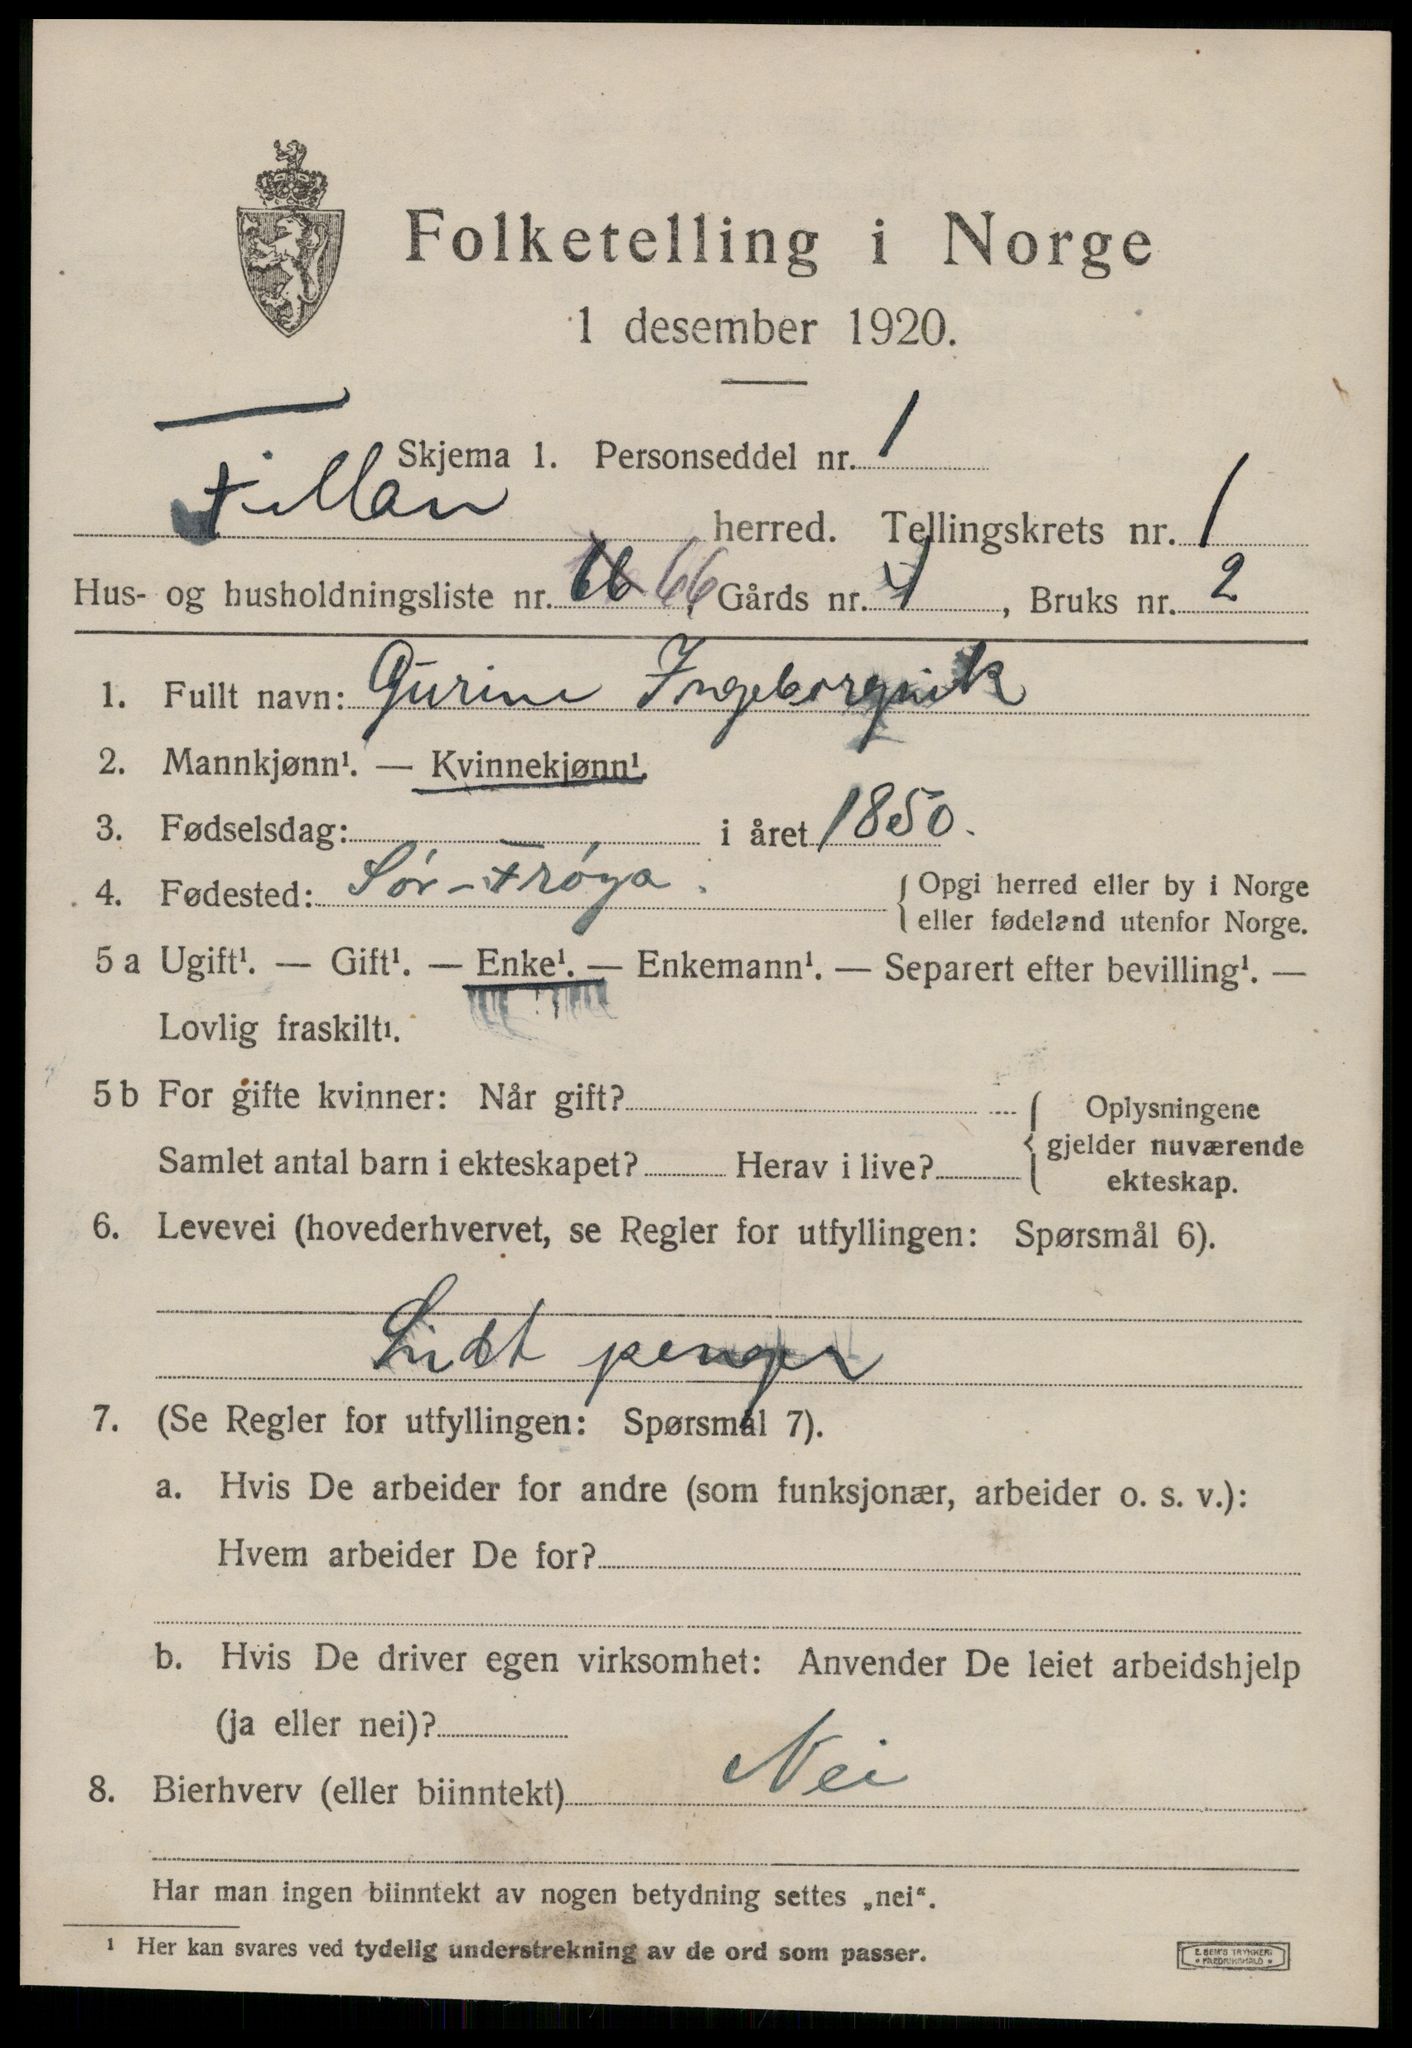 Folketelling i Norge
1 desember 1920.
Skjema 1. Personseddel nr. 1
Fillan herred. Tellingskrets nr. 1
Hus- og husholdningsliste nr. 66 66, Gårds nr. 4, Bruks nr. 2
1. Fullt navn: Gurine Ingeborgvik
2. Mannkjønn¹. — Kvinnekjønn¹.
3. Fødselsdag: i året 1850.
4. Fødested: Sör-Fröya. { Opgi herred eller by i Norge
eller fødeland utenfor Norge.
5 a Ugift¹. — Gift¹. — Enke¹. — Enkemann¹. — Separert efter bevilling¹. —
Lovlig fraskilt¹.
5 b For gifte kvinner: Når gift? { Oplysningene
gjelder nuværende
ekteskap.
Samlet antal barn i ekteskapet? Herav i live?
6. Levevei (hovederhvervet, se Regler for utfyllingen: Spørsmål 6).
penger
7. (Se Regler for utfyllingen: Spørsmål 7).
a. Hvis De arbeider for andre (som funksjonær, arbeider o. s. v.):
Hvem arbeider De for?
b. Hvis De driver egen virksomhet: Anvender De leiet arbeidshjelp
(ja eller nei)?
8. Bierhverv (eller biinntekt) Nei
Har man ingen biinntekt av nogen betydning settes „nei“.
¹ Her kan svares ved tydelig understrekning av de ord som passer.
E. SEM'S TRYKKERI
* FREDRIKSHALD *